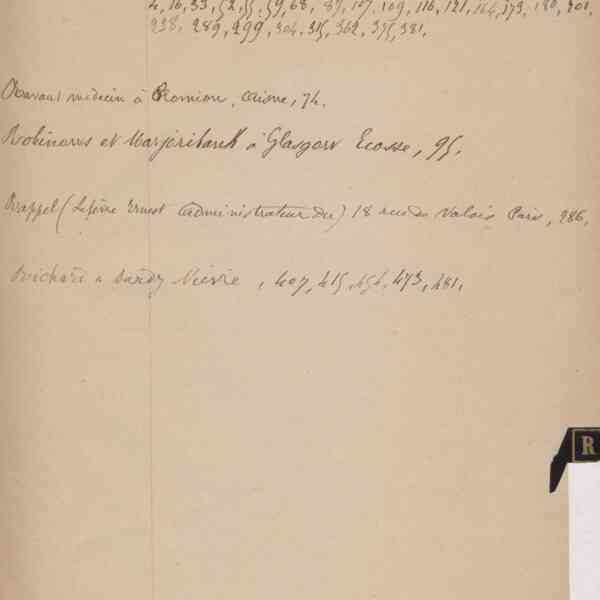 4, 16, 33, 52, 55, 59, 68, 87, 107, 109, 116, 121, 164, 173, 180, 201,
238, 289, 299, 304, 315, 362, 375, 381,
Ravant médecin à Romion, Aisne, 74.
Robinows et Marjoribank à Glasgow Ecosse, 95,
Rappel (Lefèvre Ernest administrateur du) 18 rue de Valois Paris, 286,
Richard à Nièvre, 407, 415, 454, 473, 481,
R